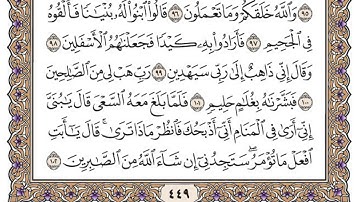 ٩٥ وَٱللَّهُ خَلَقَكُمْ وَمَا تَعْمَلُونَ ٩٦ قَالُوا۟ ٱبْنُوا۟ لَهُۥ بُنْيَٰنًا فَأَلْقُوهُ
فِى ٱلْجَحِيمِ ٩٧ فَأَرَادُوا۟ بِهِۦ كَيْدًا فَجَعَلْنَٰهُمُ ٱلْأَسْفَلِينَ ٩٨
وَقَالَ إِنِّى ذَاهِبٌ إِلَىٰ رَبِّى سَيَهْدِينِ ٩٩ رَبِّ هَبْ لِى مِنَ ٱلصَّٰلِحِينَ
١٠٠ فَبَشَّرْنَٰهُ بِغُلَٰمٍ حَلِيمٍ ١٠١ فَلَمَّا بَلَغَ مَعَهُ ٱلسَّعْىَ قَالَ يَٰبُنَىَّ
إِنِّىٓ أَرَىٰ فِى ٱلْمَنَامِ أَنِّىٓ أَذْبَحُكَ فَٱنظُرْ مَاذَا تَرَىٰ ۚ قَالَ يَٰٓأَبَتِ
ٱفْعَلْ مَا تُؤْمَرُ ۖ سَتَجِدُنِىٓ إِن شَآءَ ٱللَّهُ مِنَ ٱلصَّٰبِرِينَ ١٠٢
٤٤٩